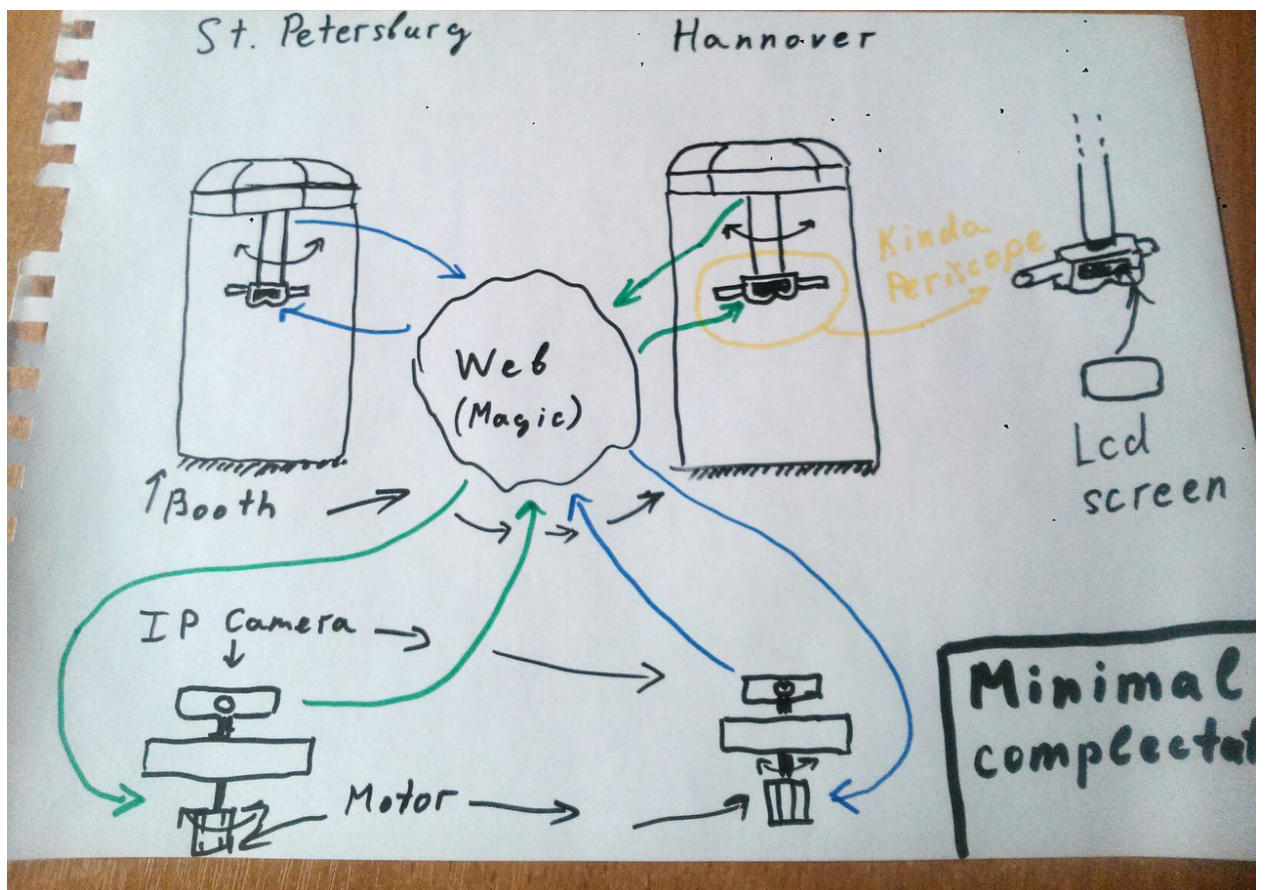 St. Petersburg
Hannover
Kinda
Periscope
Web
(Magic)
Lcd
screen
Booth
IP Camera
Motor
Minimal
complectat